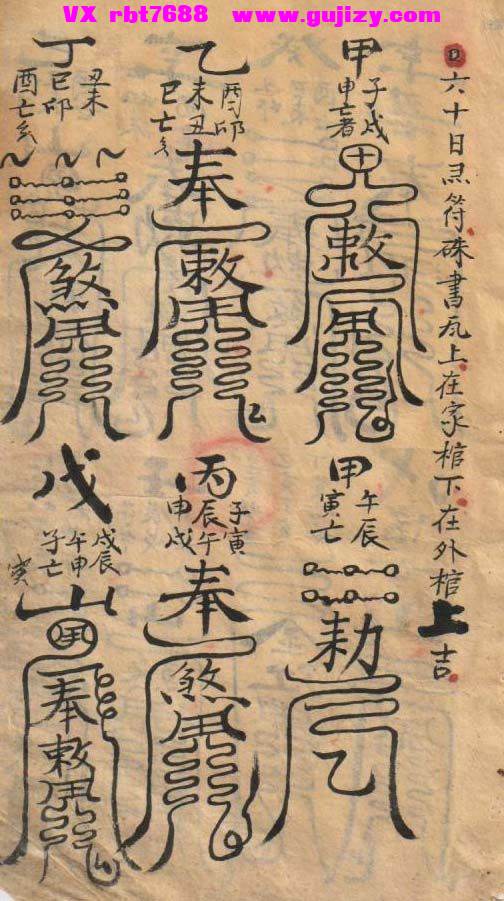 VX rbt7688 www.gujizy.com
六十日杀符硃書瓦上在家棺下在外棺上吉
甲
子戌
申亡者
敕
甲
午辰
寅亡
乙
酉卯
未丑
巳亡
奉
敕
丙
子寅
辰午
申戌
奉
煞
丁
丑未
巳卯
酉亡
煞
戊
戌辰
午申
子亡
寅
山
奉
敕